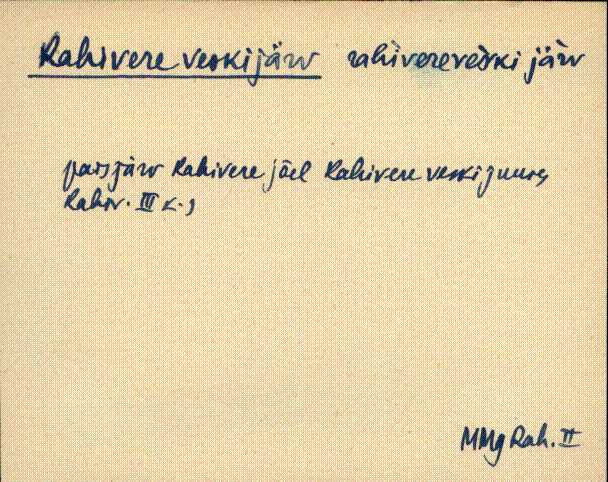 Rahivere veskijärv rahivereveski järv
paisjärv Rahivere jõel Rahivere veski juures
Rahiv. III k.,
MMg Rah. II